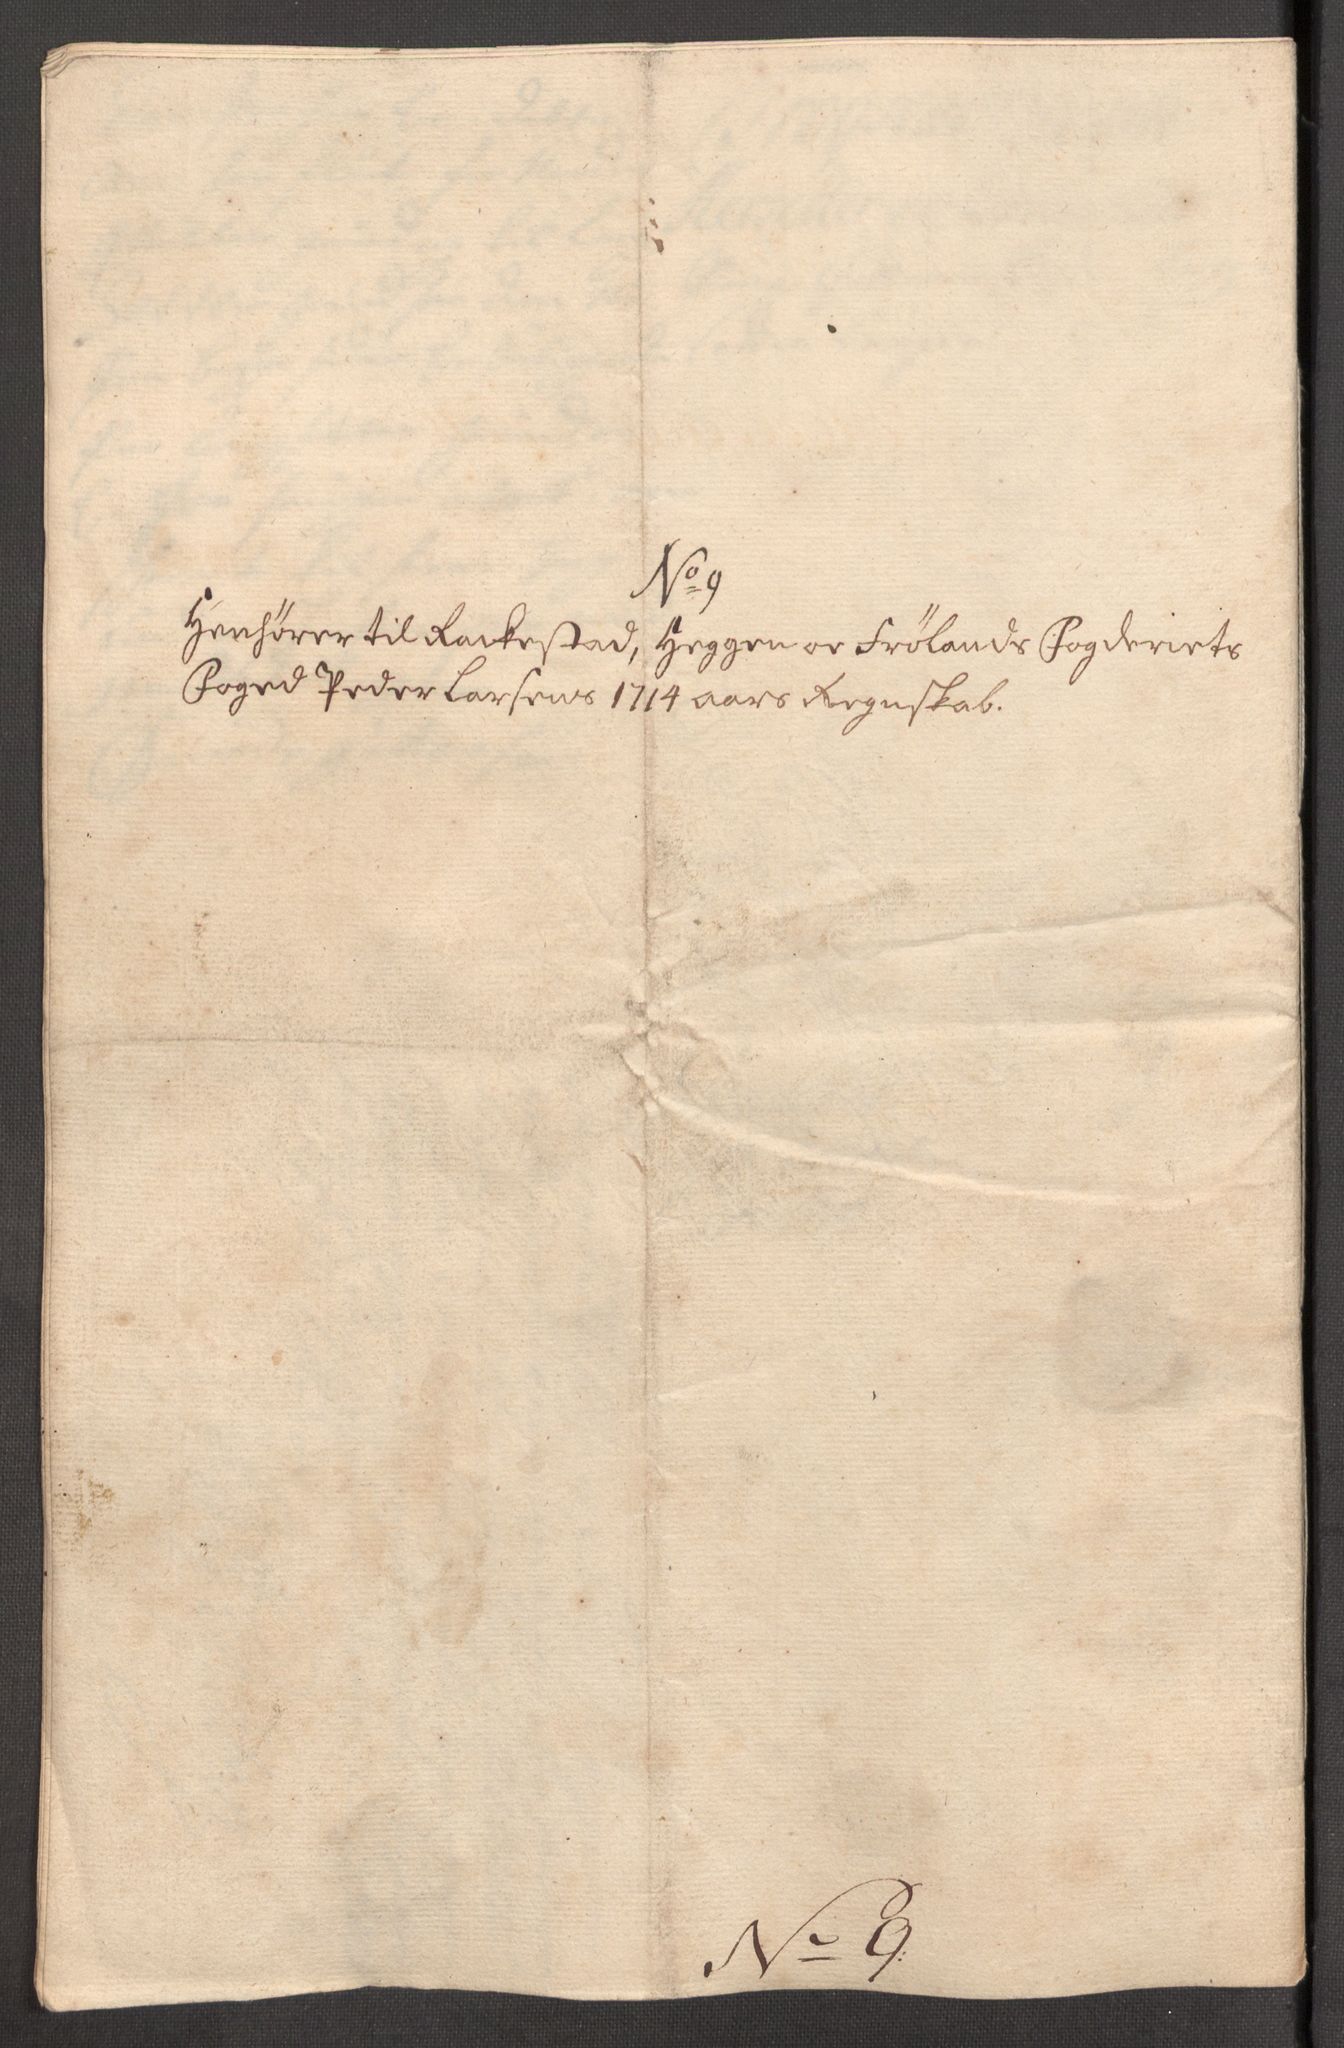 No 9
Henhörer til Rackestad, Heggen oc Frölands Fogderiets
Foged Peder Larsens 1714 aars Regnskab.
No 9